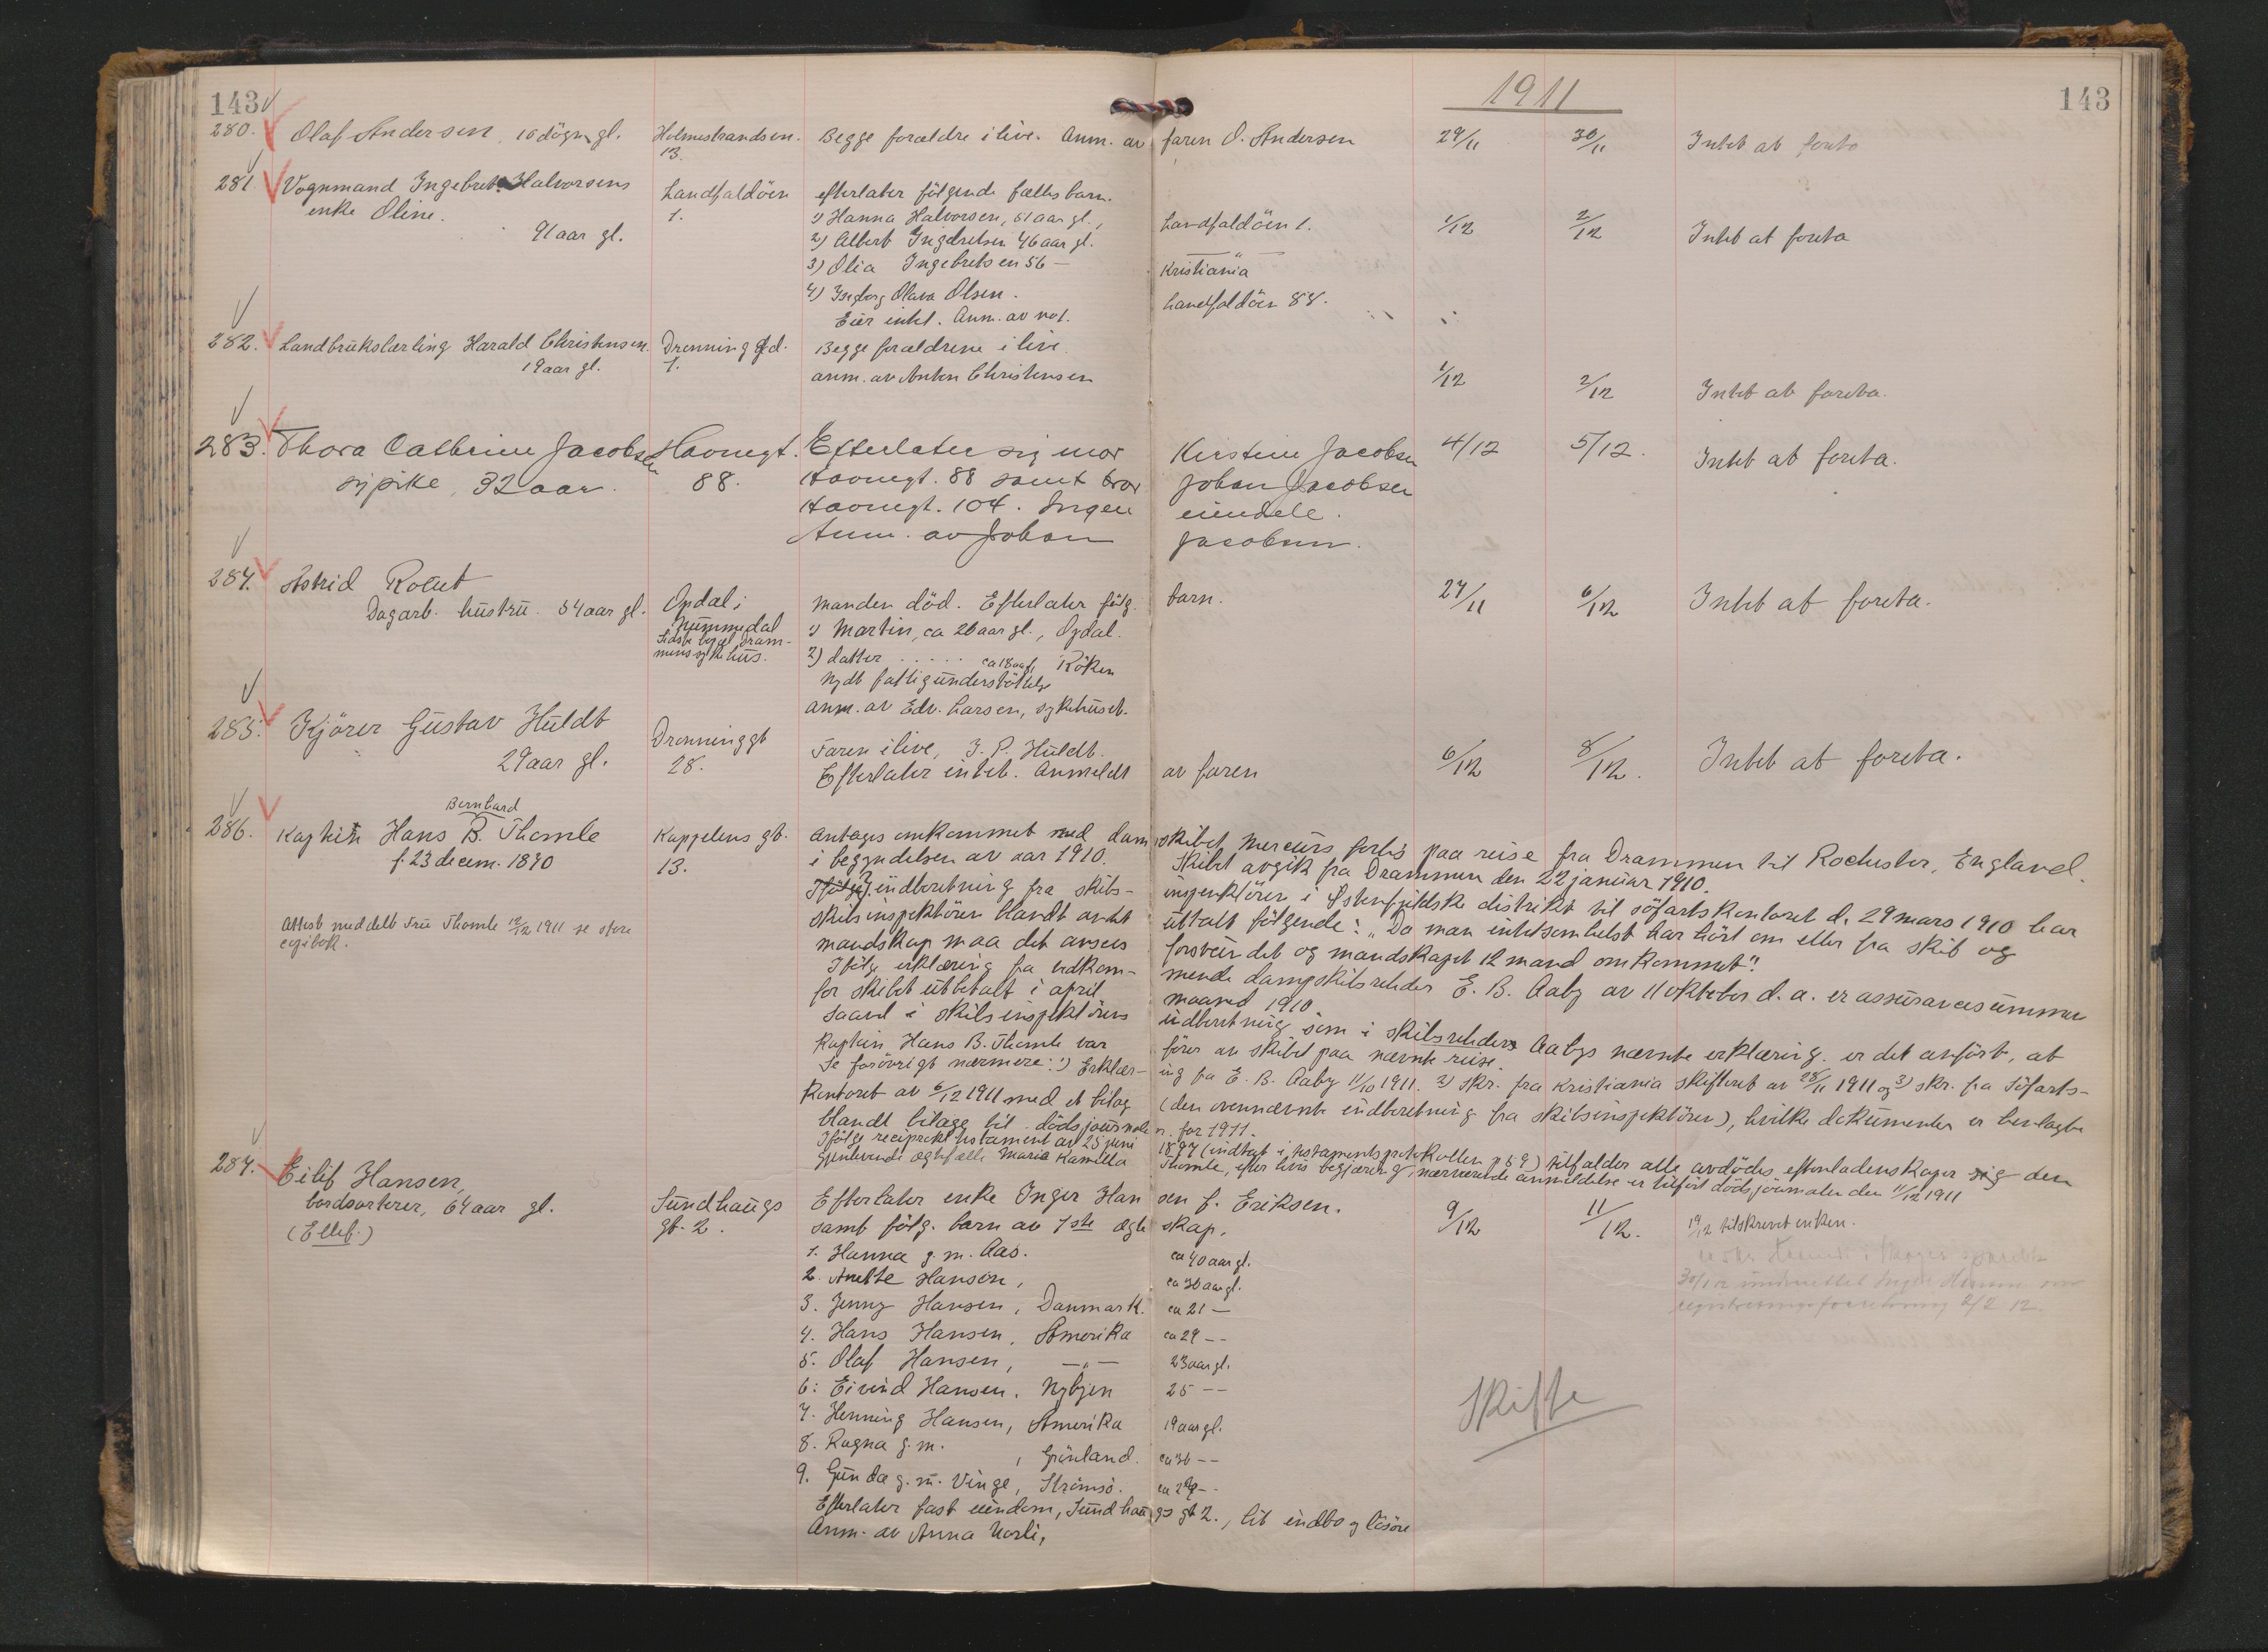 143 1911 143
280. Olaf Andersen, 10 dögn gl. Holmestrandsvn. Begge forældre i live. Anm. av faren O. Andersen 29/11 30/11 Intet at foreta
13.
281. Vognmand Ingebret Halvorsens Landfaldöen efterlater fölgende fælles barn.
enke Oline. 1. 1) Hanna Halvorsen, 51 aar gl., Landfaldöen 1. 1/12 2/12 Intet at foreta
91 aar gl. 2) Albert Ingebretsen 46 aar gl. — " —
3) Olia Ingebretsen 56 — Kristiania
4) Ingborg Olava Olsen. Landfaldöen 88.
Eier intet. Anm. av no 1.
282. Landbrukslærling Harald Christensen. Dronninggd. Begge forældrene i live.
19 aar gl. 1. anm. av Anton Christensen 1/12 2/12 Intet at foreta.
283. Thora Cathrine Jacobsen Havnegt. Efterlater sig mor Kirstine Jacobsen 4/12 5/12. Intet at foreta.
sypike, 32 aar. 88. Havnegt. 88 samt bror Johan Jacobsen
Havnegt. 104. Ingen eiendele.
Anm. av Johan Jacobsen.
284. Astrid Rocut
Dagarb. hustru. 54 aar gl. Opdal i manden död. Efterlater fölg. barn. 27/11 6/12 Intet at foreta.
Nummedal 1) Martin, ca 26 aar gl., Opdal.
Sidste bopæl Dram-
mens sykehus. 2) datter . . . . . ca 18 aar, Röken
Nydt fattigunderstöttelse
anm. av Edv. Larsen, sykehuset.
285. Kjörer Gustav Huldt Dronninggt Faren i live, J. P. Huldt.
29 aar gl. 28. Efterlater intet. Anmeldt av faren 6/12 8/12. Intet at foreta.
Bernhard
286. Kaptein Hans B. Thomle Kappelens gt. Antages omkommet med dampskibet Mercurs forlis paa reise fra Drammen til Rochester, England.
f. 23 decem. 1870 13. i begyndelsen av aar 1910. Skibet avgik fra Drammen den 22 januar 1910.
Ifölge indberetning fra skibs- inspektören i Østenfjeldske distrikt til söfartskontoret d. 29 mars 1910 har
Attest meddelt Fru Thomle 12/12 1911 se store skibsinspektören blandt andet uttalt fölgende: "Da man intetsomhelst har hört om eller fra skib og
copibok. mandskap maa det ansees forsvundet og mandskapet 12 mand omkommet".
Ifölge erklæring fra vedkom- mende dampskibsreder E. B. Aaby av 11 oktober d. a. er assurancesummen
for skibet utbetalt i april maaned 1910.
Saavel i skibsinspektörens indberetning som i skibsreders Aabys nævnte erklæring er det anfört, at
Kaptein Hans B. Thomle var förer av skibet paa nævnte reise.
Se forövrigt nærmere: 1) Erklær- ing fra E. B. Aaby 11/10 1911. 2) skr. fra Kristiania skifteret av 28/11 1911 og 3) skr. fra Söfarts-
kontoret av 6/12 1911 med et bilag (den ovennævnte indberetning fra skibsinspektören), hvilke dokumenter er henlagte
blandt bilage til dödsjournalen for 1911.
Ifölge reciprokt testament av 25 juni 1897 (indtat i testamentsprotokollen p 59) tilfalder alle avdödes efterladenskaper sig den
gjenlevende ægtefælle Maria Kamilla Thomle, efter hvis begjæring nærværende anmeldelse er tilfört dödsjournalen den 11/12 1911
287. Eilif Hansen,
bordsorterer, 64 aar gl. Sundhaugs Efterlater enke Inger Hansen f. Eriksen. 9/12 11/12. 19/12 tilskrevet enken.
(Ellef.) gt. 2. samt fölg. barn av 1ste ægteskap.
1. Hanna g. m. Aas. ca 40 aar gl.
2. Anette Hansen, ca 36 aar gl.
3. Jenny Hansen, Danmark. ca 21 —
4. Hans Hansen, Amerika ca 29 — —
5. Olaf Hansen, — " — 23 aar gl.
6. Eivind Hansen. Nybyen 25 — —
7. Henning Hansen, Amerika 19 aar gl. Skifte
8. Ragna g. m. , Grönland. ca 36 — —
9. Gunda g. m. Vinge, Strömsö. ca 29 — —
Efterlater fast eiendom, Sundhaugs gt 2., lit indbo og lösöre
Anm. av Anna Norli,